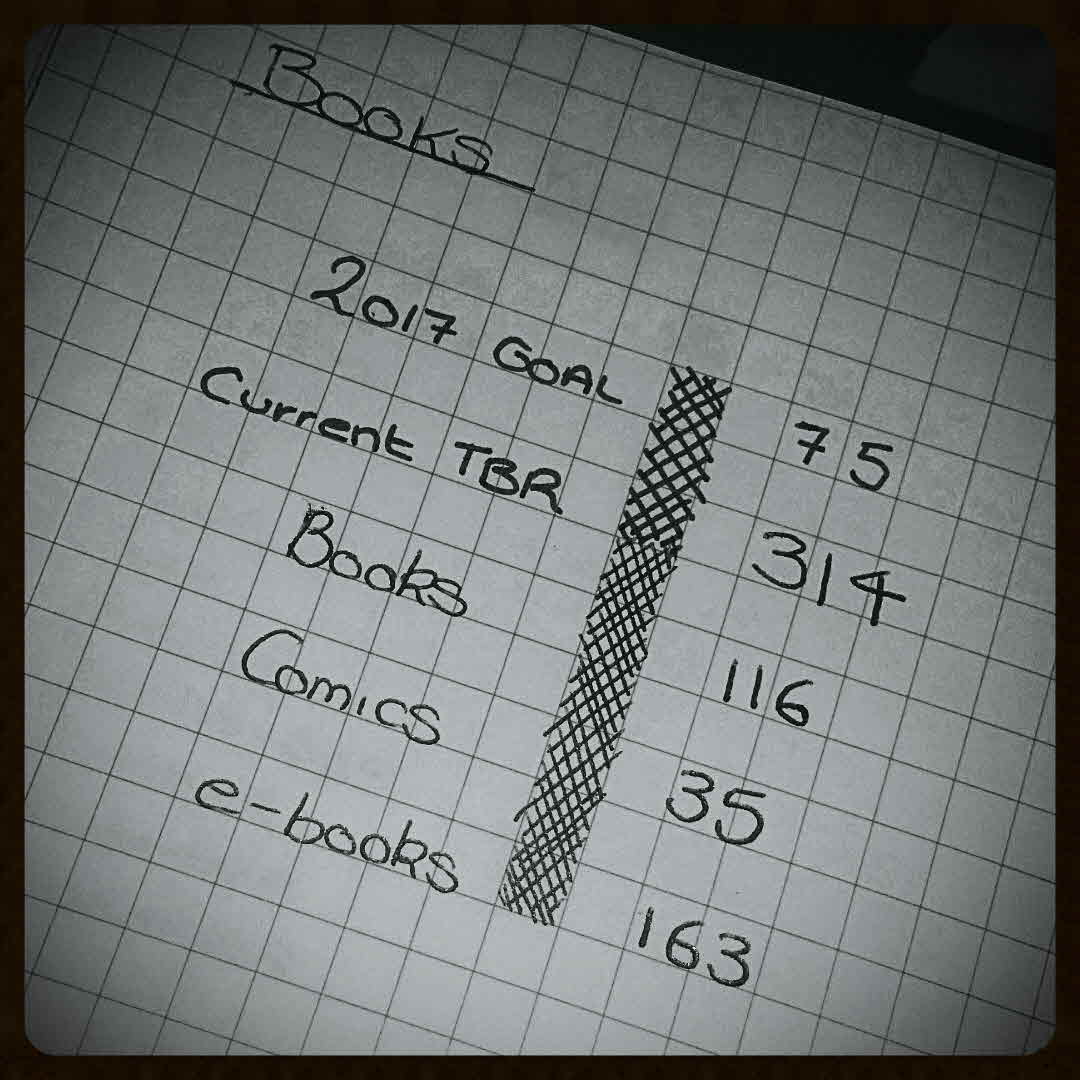 Books
2017 GOAL 75
Current TBR 314
Books 116
Comics 35
e-books 163